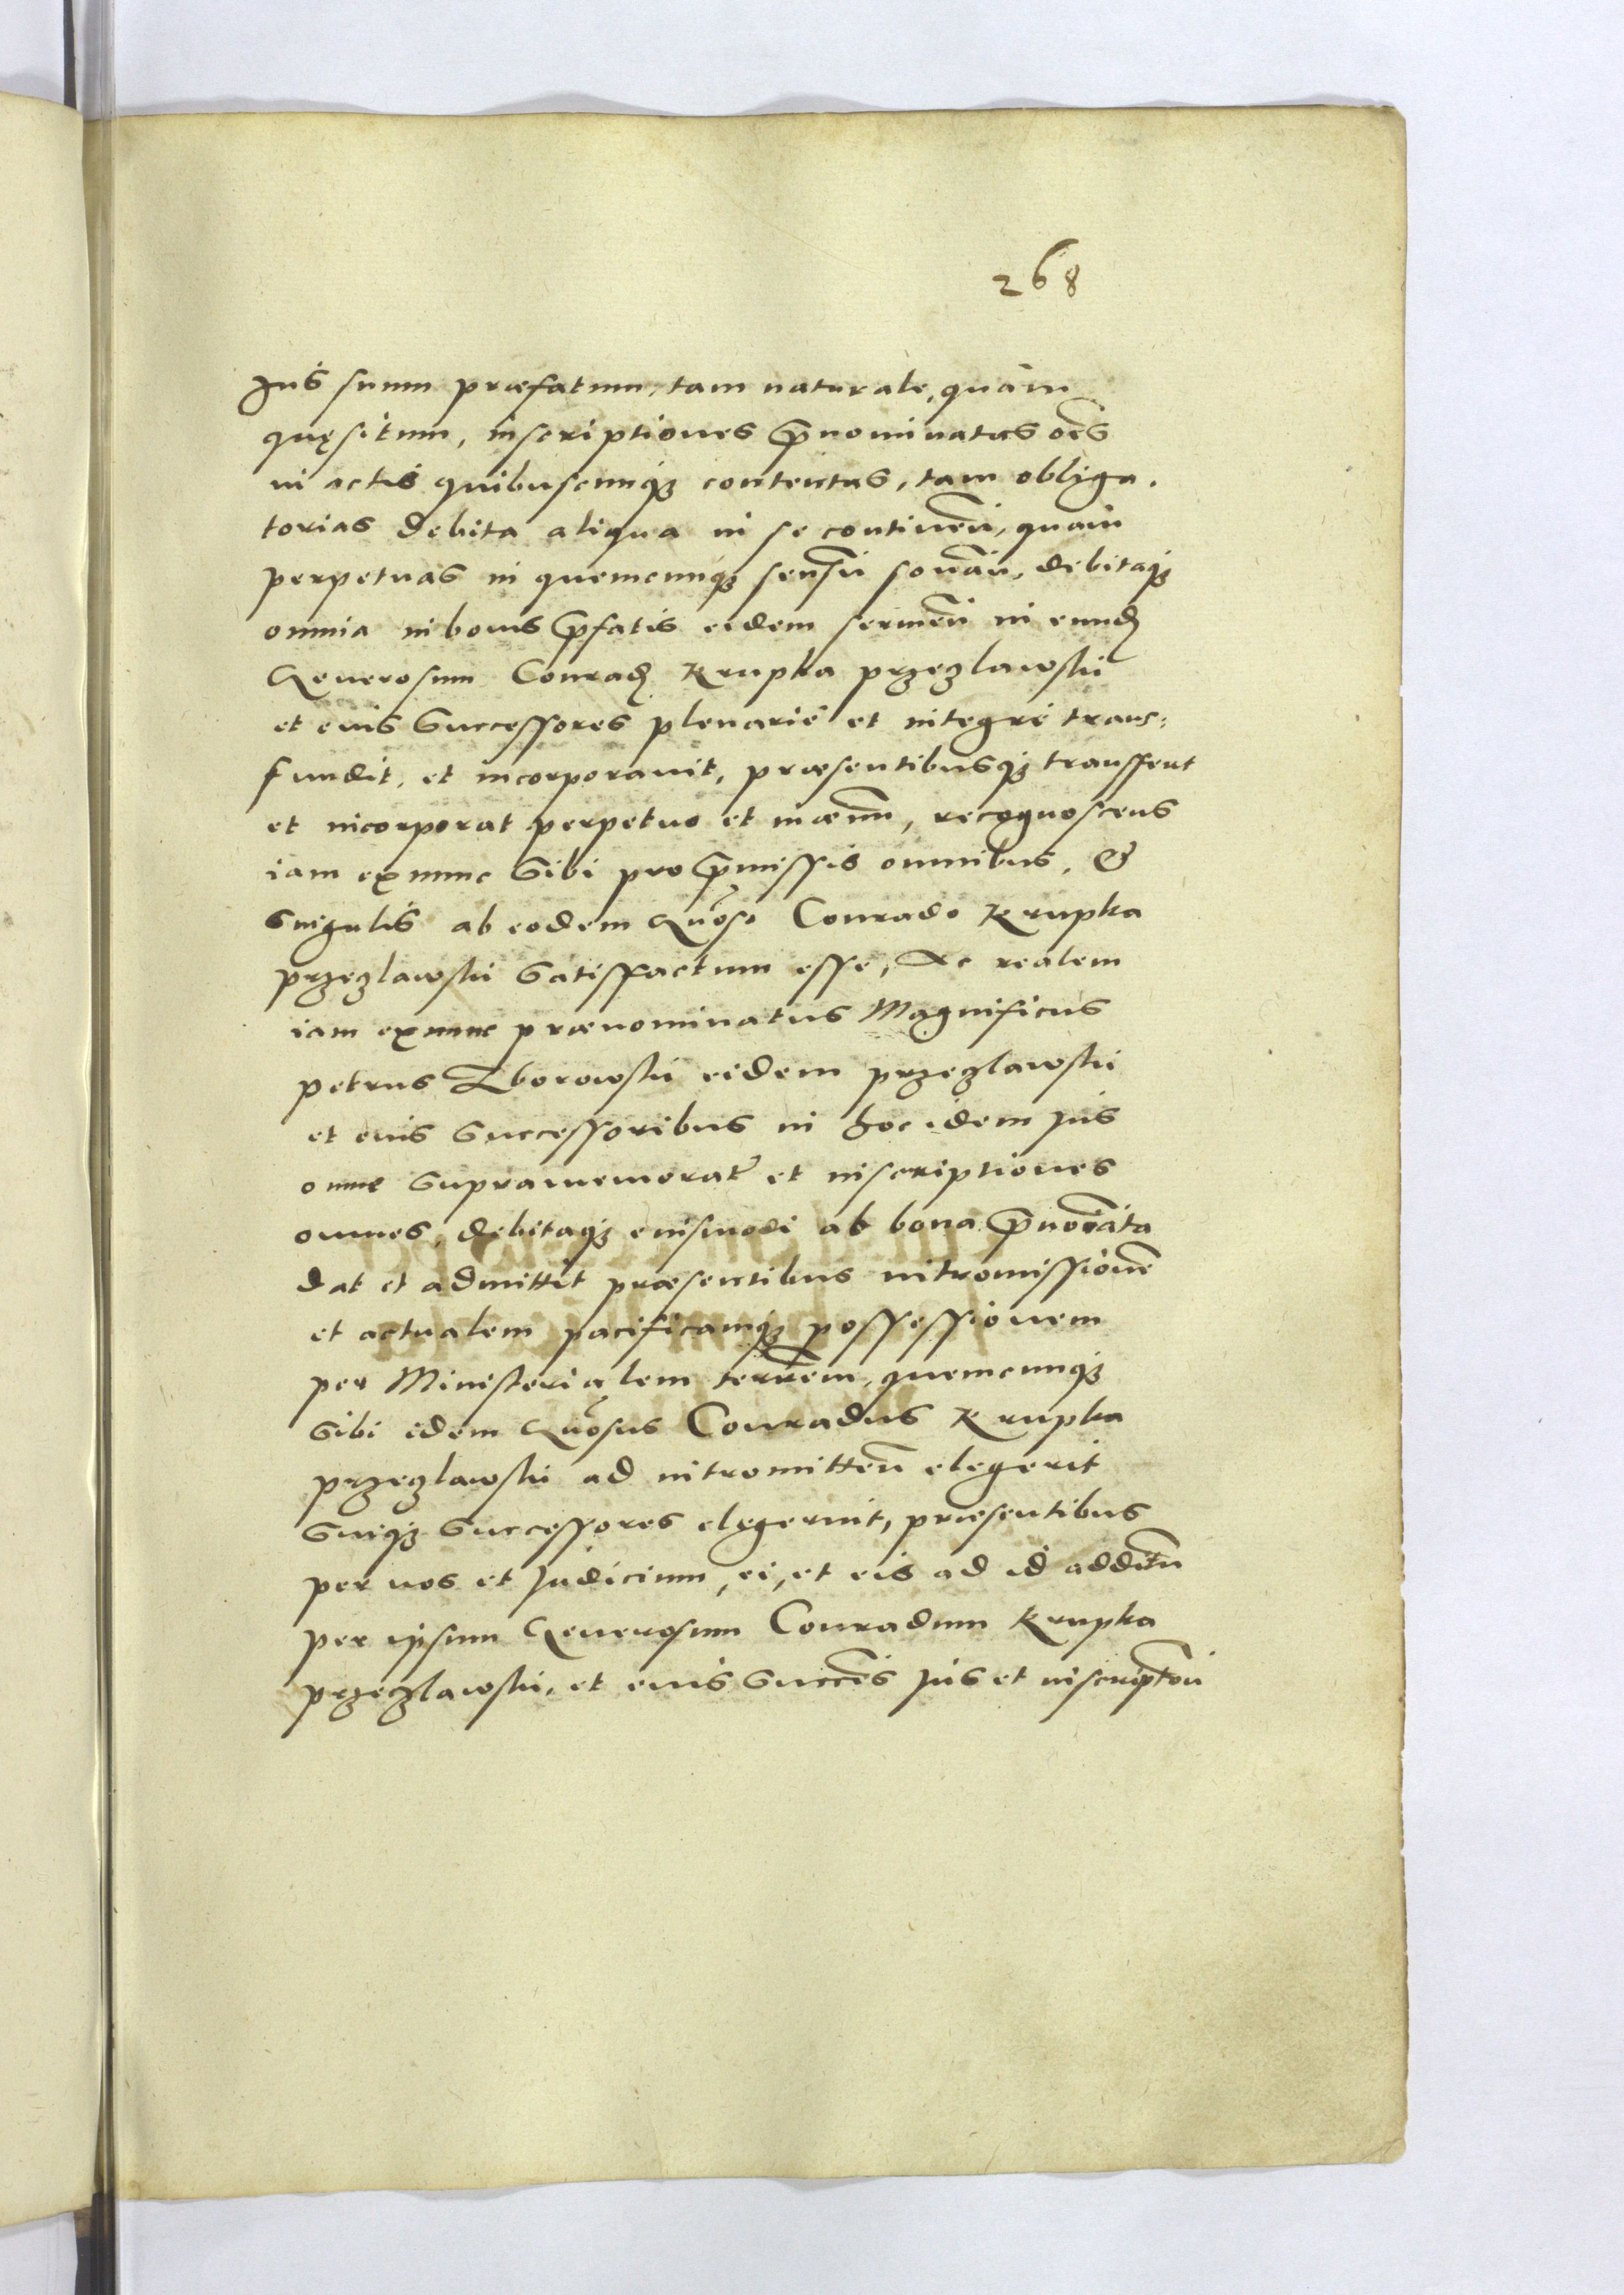 268
Jus suum præfatum, tam naturale, quàm
quęsitum, inscriptiones p̄nominatas oēs
in actis quibuscunq₃ contentas, tam obliga-
torias debita aliqua in se continen̄, quàm
perpetuas in quemcunq₃ sensū sonan̄, debitaq₃
omnia in bonis p̄fatis eidem servien̄ in eund
Generosum Conrad Krupka przezlawski
et eius Successores plenariè et integrè trans=
fundit, et incorporavit, præsentibusq₃ transffert
et incorporat perpetuo et in æum̄, recognoscens
iam ex nunc Sibi pro p̄missis omnibus, &
Singulis ab eodem Gn̄oso Conrado Krupka
przezlawski Satisffactum esse, Ac realem
iam ex nunc prænominatus Magnificus
petrus Zborowski eidem przezlawski
et eius Successoribus in hoc idem Jus
omne Supramemorat et inscriptiones
omnes, debitaq₃ eiusmodi ab bona p̄noīata
dat et admittit præsentibus intromissionē
et actualem pacificamq₃ possessionem
per Ministerialem terrēm, quemcunq₃
Sibi idem Gn̄osus Conradus Krupka
przezlawski ad intromitten̄ elegerit
Suiq₃ Successores elegerint, præsentibus
per nos et Judicium, ei, et eis ad id additū
per ipsum Generosum Conradum Krupka
przezlawski, et eius Succēs Jus et inscripton̄